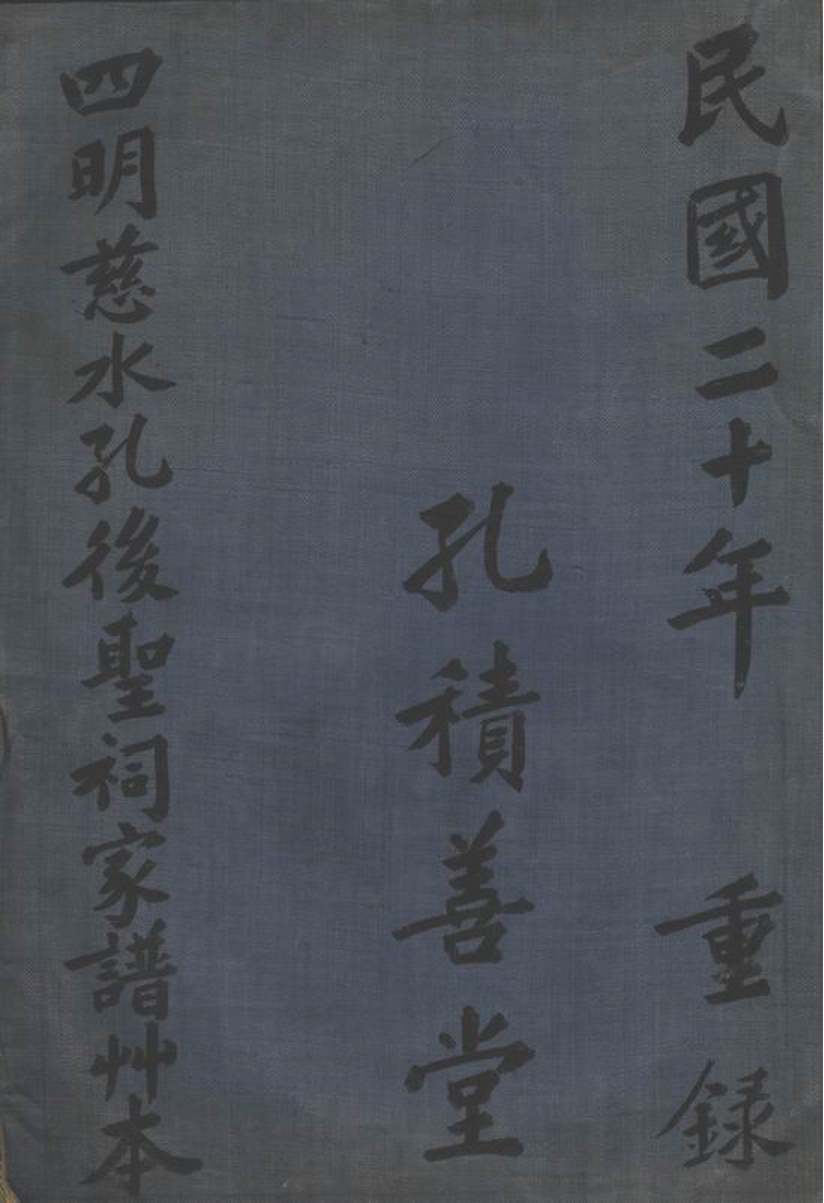 民國二十年　重錄
孔積善堂
四明慈水孔後聖祠家譜艸本